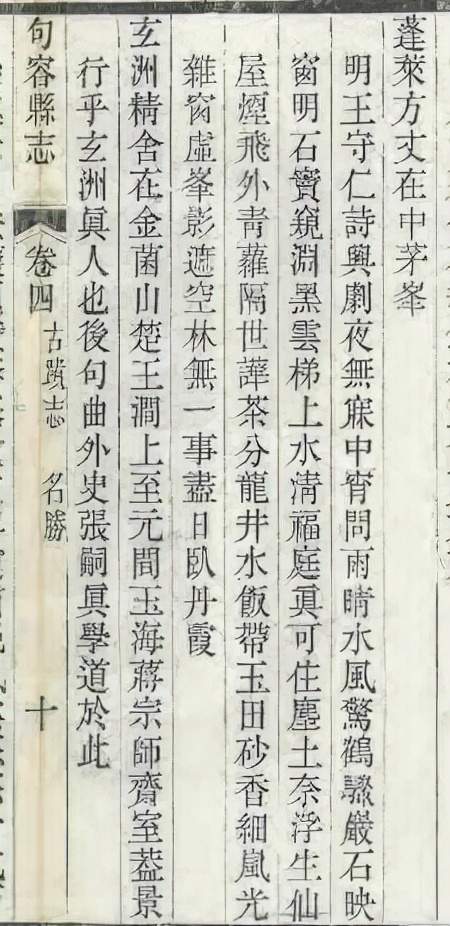 蓬萊方丈在中茅峯
明王守仁詩興劇夜無寐中宵問雨晴水風驚鶴驟巖石映
窗明石竇窺淵黑雲梯上水淸福庭眞可住塵土奈浮生仙
屋煙飛外靑蘿隔世譁茶分龍井水飯帶玉田砂香細嵐光
雜窗虛峯影遮空林無一事盡日臥丹霞
玄洲精舍在金菌山楚王澗上至元間玉海蔣宗師齋室葢景
行乎玄洲眞人也後句曲外史張嗣眞學道於此
句容縣志
卷四
古蹟志 名勝
十